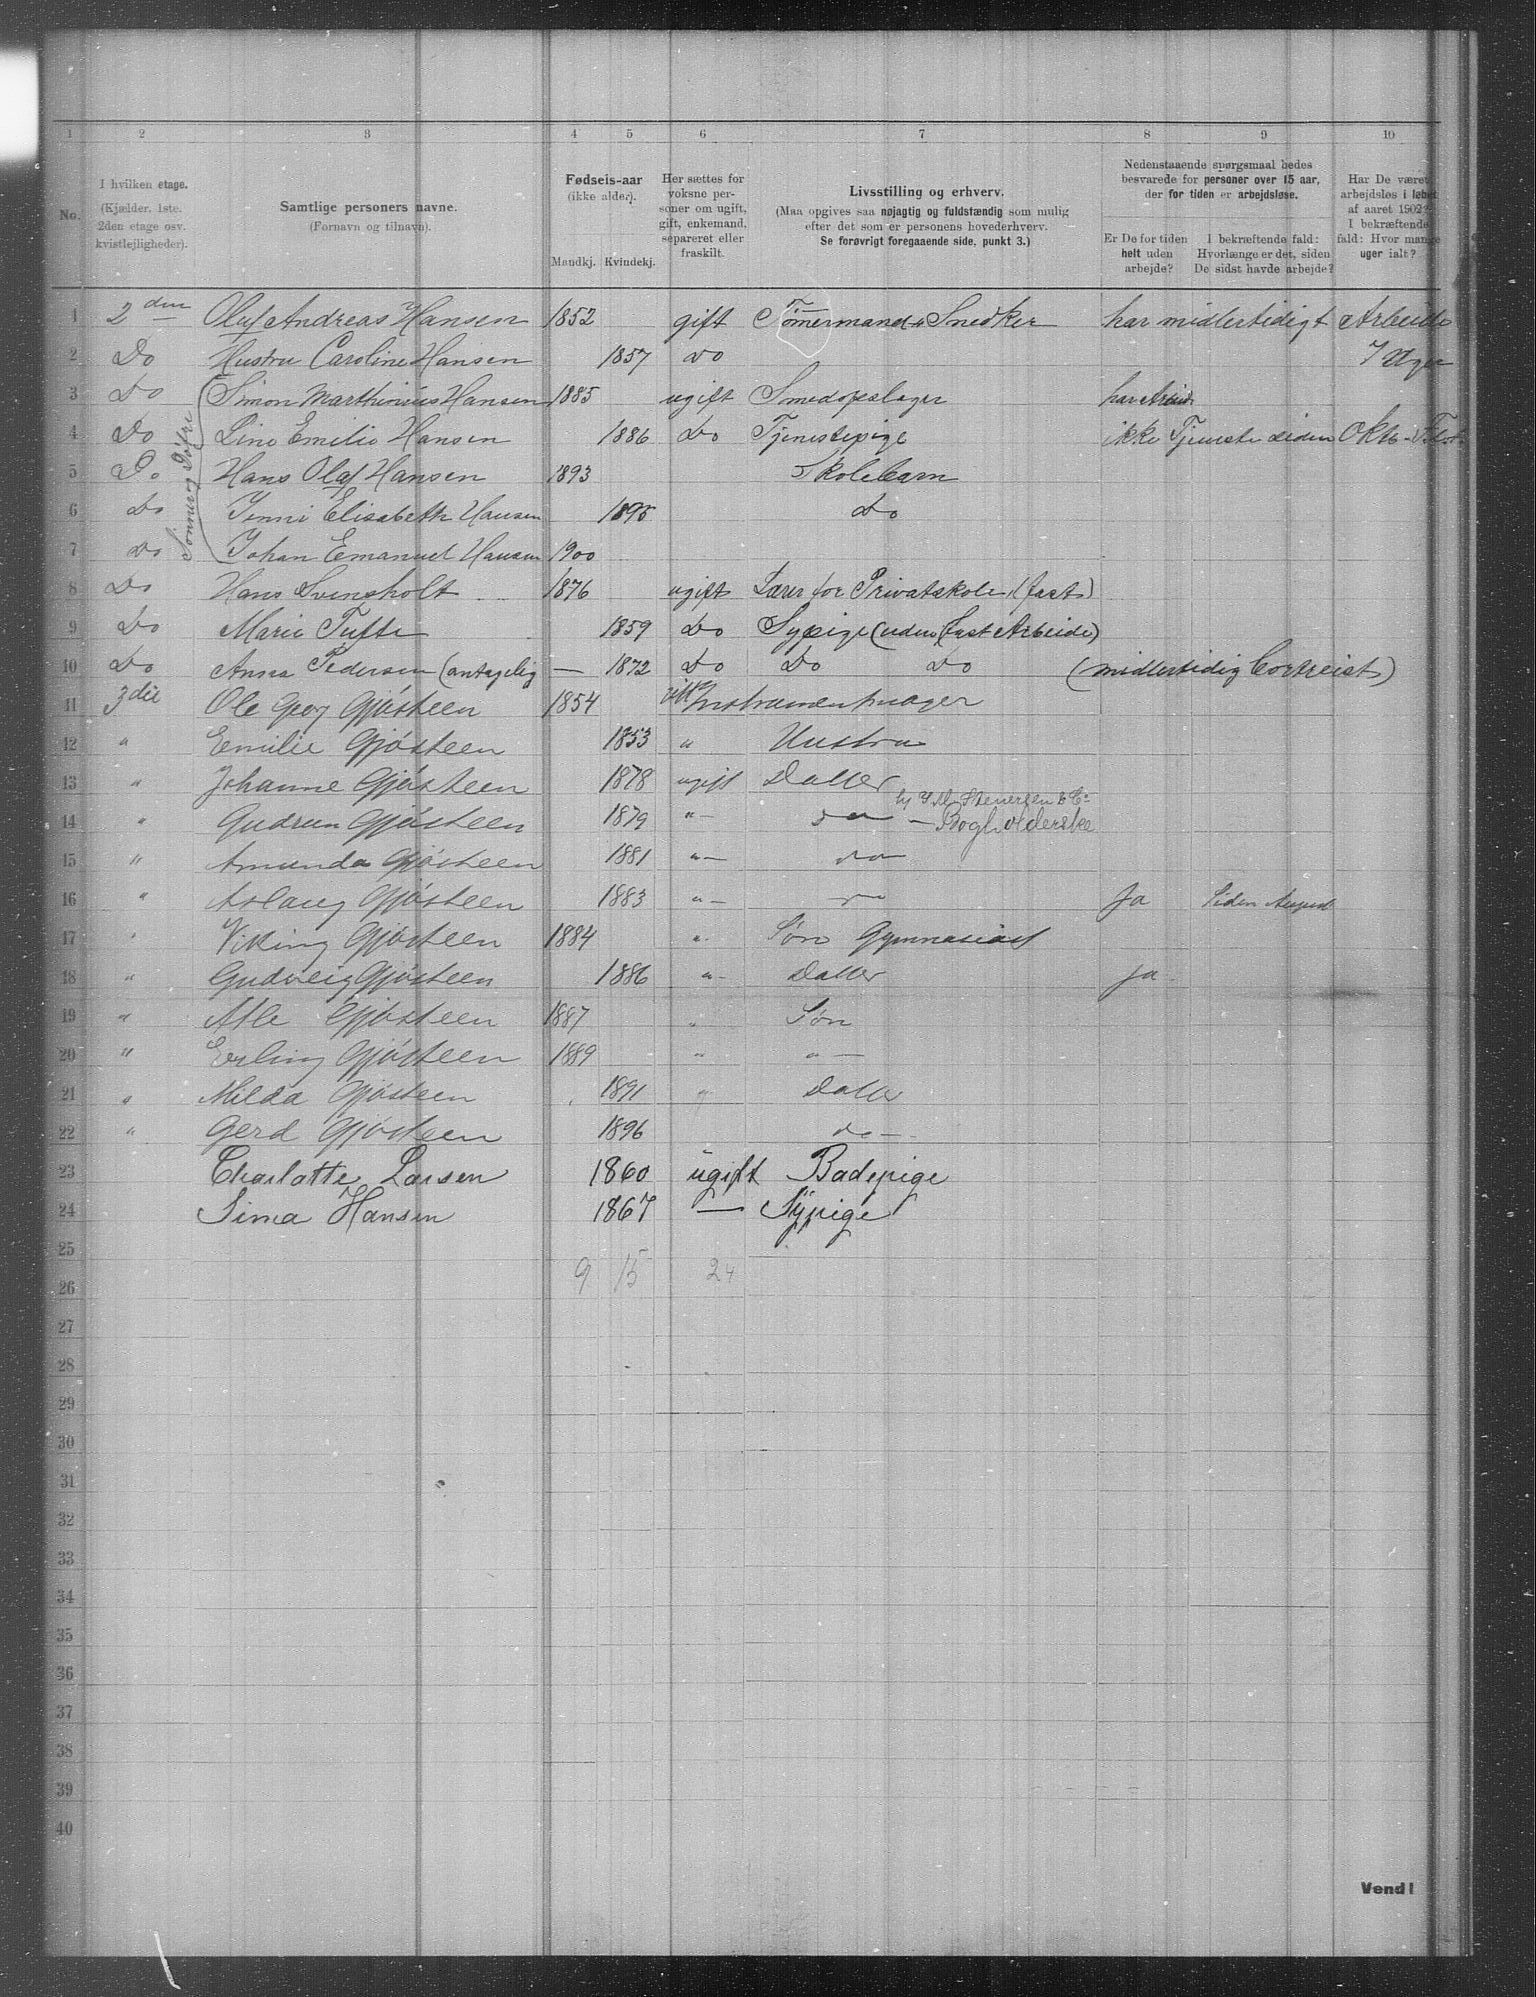 1 2 3 4 5 6 7 8 9 10
No.
I hvilken etage.
(Kjælder, 1ste.
2den etage osv.
kvistlejligheder).
Samtlige personers navne.
(Fornavn og tilnavn).
Fødsels-aar
(ikke alder).
Mandkj. Kvindekj.
Her sættes for
voksne per-
soner om ugift,
gift, enkemand,
separeret eller
fraskilt.
Livsstilling og erhverv.
(Maa opgives saa nøjagtig og fuldstændig som mulig
efter det som er personens hovederhverv.
Se forøvrigt foregaaende side, punkt 3.)
Nedenstaaende spørgsmaal bedes
besvarede for personer over 15 aar,
der for tiden er arbejdsløse.
Er De for tiden
helt uden
arbejde?
I bekræftende fald:
Hvorlænge er det, siden
De sidst havde arbejde?
Har De været
arbejdsløs i løbet
af aaret 1902?
I bekræftende
fald: Hvor mange
uger ialt?
1 2den Oluf Andreas Hansen 1852 gift Tømmermand & Snedker har midlertidigt Arbeide
2 Do Hustru Caroline Hansen 1857 Do 7 Uger
Sønner og Døtre
3 Do Simon Marthinius Hansen 1885 ugift Smedopslager har Arbeid
4 Do Lina Emilie Hansen 1886 Do Tjenestepige ikke Tjeneste siden Okto-
5 Do Hans Olaf Hansen 1893 Skolebarn
6 Do Jenni Elisabeth Hansen 1895 Do
7 Do Johan Emanuel Hansen 1900
8 Do Hans Svensholt 1876 ugift Lærer for Privatskole (fast)
9 Do Marie Tufte 1859 Do Sypige (uden fast Arbeide)
10 Do Anna Pedersen (antagelig — 1872 Do Do Do (midlertidig bortreist)
11 3die Ole Georg Gjøsteen 1854 gift Instrumentmager
12 " Emilie Gjøsteen 1853 " Hustru
13 " Johanne Gjøsteen 1878 ugift Datter
14 " Gudrun Gjøsteen 1879 " — do — Bogholderske
15 " Amunda Gjøsteen 1881 " — do
16 " Aslaug Gjøsteen 1883 " — do Ja Siden August
17 " Viking Gjøsteen 1884 " Søn Gymnasiast
18 " Gudveig Gjøsteen 1886 " — Datter Ja
19 " Atle Gjøsteen 1887 " Søn
20 " Erling Gjøsteen 1889 " " —
21 " Milda Gjøsteen 1891 " Datter
22 " Gerd Gjøsteen 1896 do —
23 Charlotte Larsen 1860 ugift Badepige
24 Sima Hansen 1867 — Sypige
25
9 15 24
26
27
28
29
30
31
32
33
34
35
36
37
38
39
40
Vend!